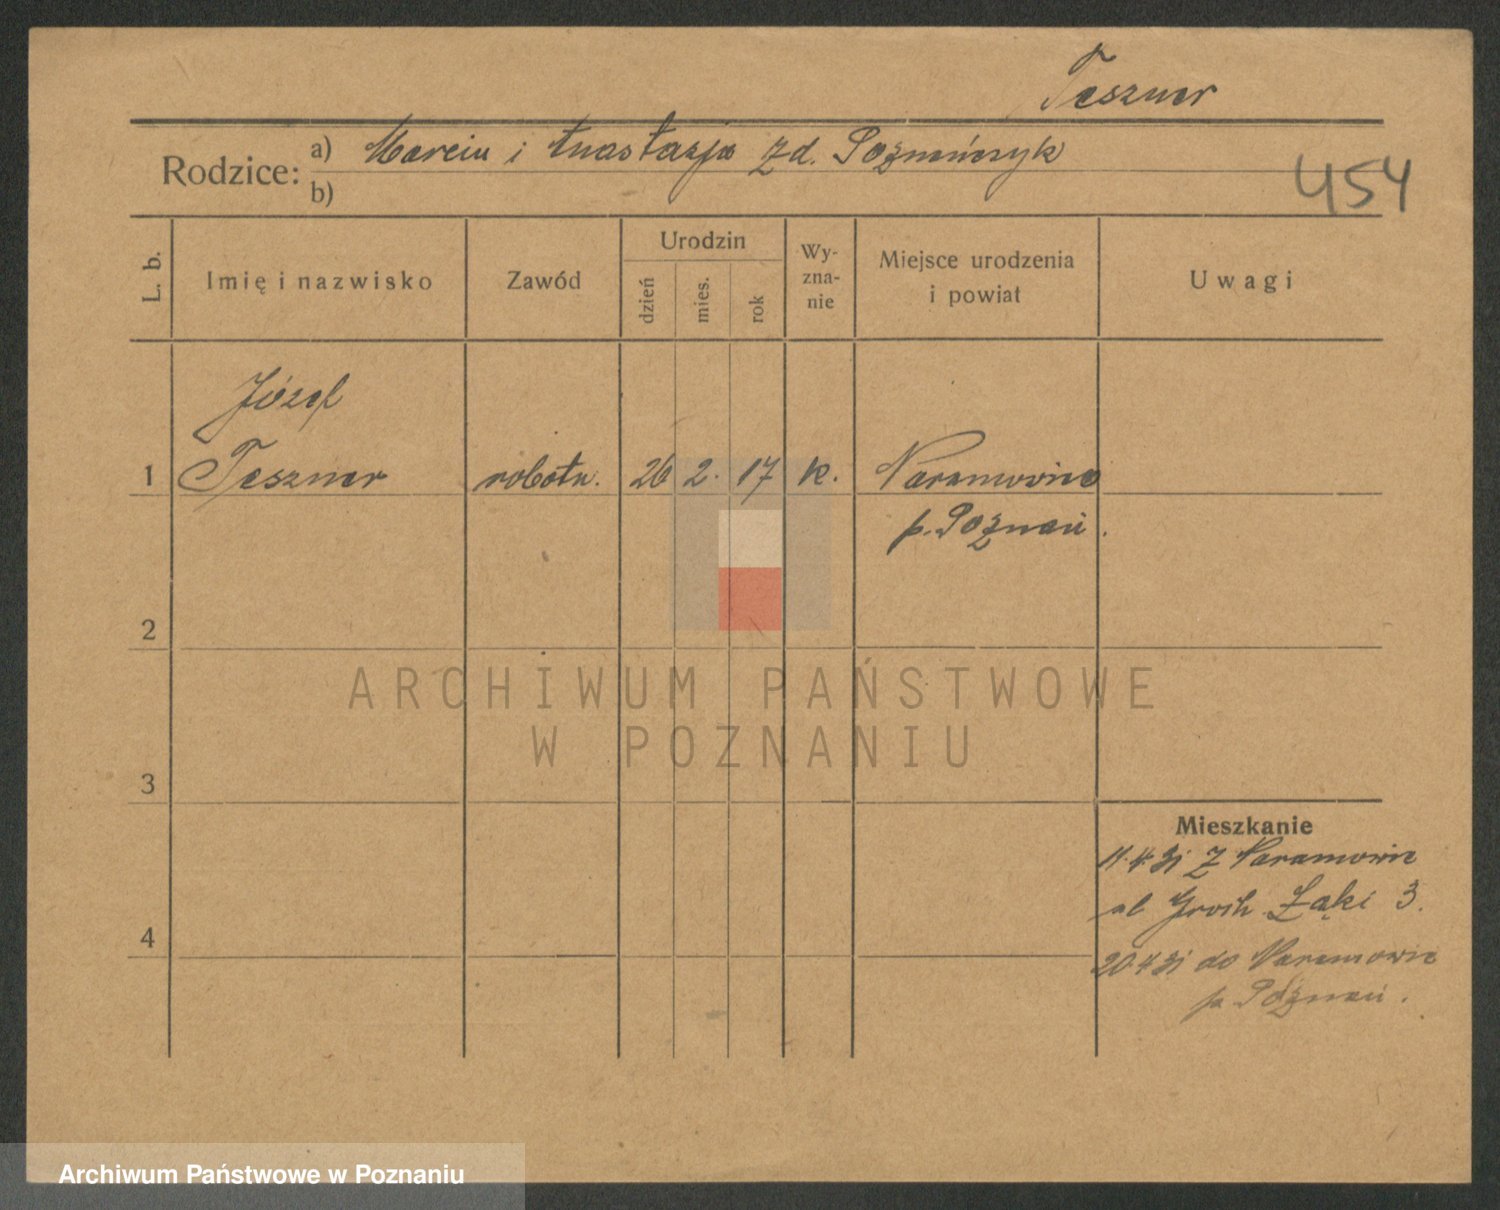 Teszner
Rodzice: a) Marcin i Anastazja zd. Poznańczyk
454
b)
L. b.
Imię i nazwisko
Zawód
Urodzin
dzień
mies.
rok
Wy-
zna-
nie
Miejsce urodzenia
i powiat
Uwagi
Józef
1 Teszner robotn. 26 2. 17 k. Naramowice
p. Poznań.
2
3
4
Mieszkanie
11.4.31 z Naramowic
ul Groch. Łąki 3.
20.4.31 do Naramowic
p. Poznań.
ARCHIWUM PAŃSTWOWE
W POZNANIU
Archiwum Państwowe w Poznaniu